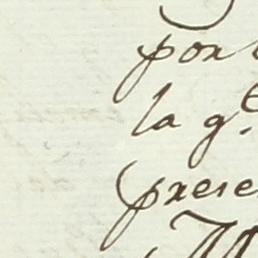 por
la g.e
prese